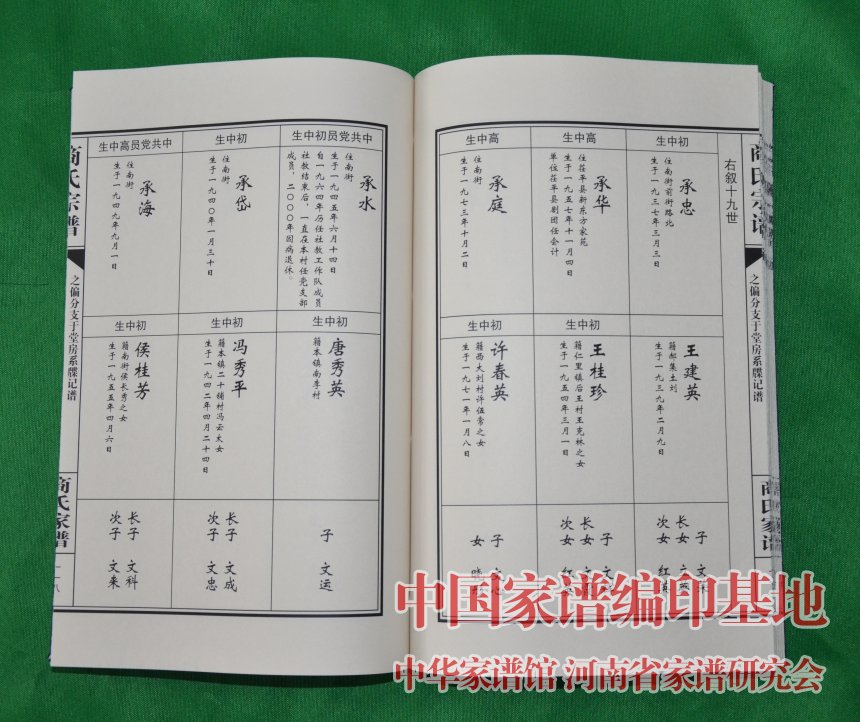 商氏宗谱
之偏分支于堂房系牒记谱
商氏家谱
右叙十九世
初中生
承忠
住南街前街路北
生于一九三七年三月三日
初中生
王建英
籍郝集土刘
生于一九三九年二月九日
子
长女
次女
高中生
承华
住茌平县新东方家苑
生于一九五七年十一月四日
单位茌平县剧团任会计
初中生
王桂珍
籍仁里镇后王村王克林之女
生于一九五四年三月一日
子
长女
次女
高中生
承庭
住南街
生于一九七三年十月二日
初中生
许春英
籍西大刘村许伍常之女
生于一九七一年一月八日
子
女
中共党员初中生
承水
住南街
生于一九四五年六月十四日
自一九六四年历任社教工作队成员
社教结束后，一直在本村任党支部
成员，二〇〇〇年因病退休。
初中生
唐秀英
籍本镇南李村
子 文运
初中生
承岱
住南街
生于一九四〇年一月三十日
初中生
冯秀平
籍本镇二十铺村冯云太女
生于一九四二年四月二十四日
长子 文成
次子 文忠
中共党员高中生
承海
住南街
生于一九四九年九月一日
初中生
侯桂芳
籍南街侯长秀之女
生于一九五五年四月六日
长子 文科
次子 文来
商氏宗谱
之偏分支于堂房系牒记谱
商氏家谱
一一八
中国家谱编印基地
中华家谱馆 河南省家谱研究会